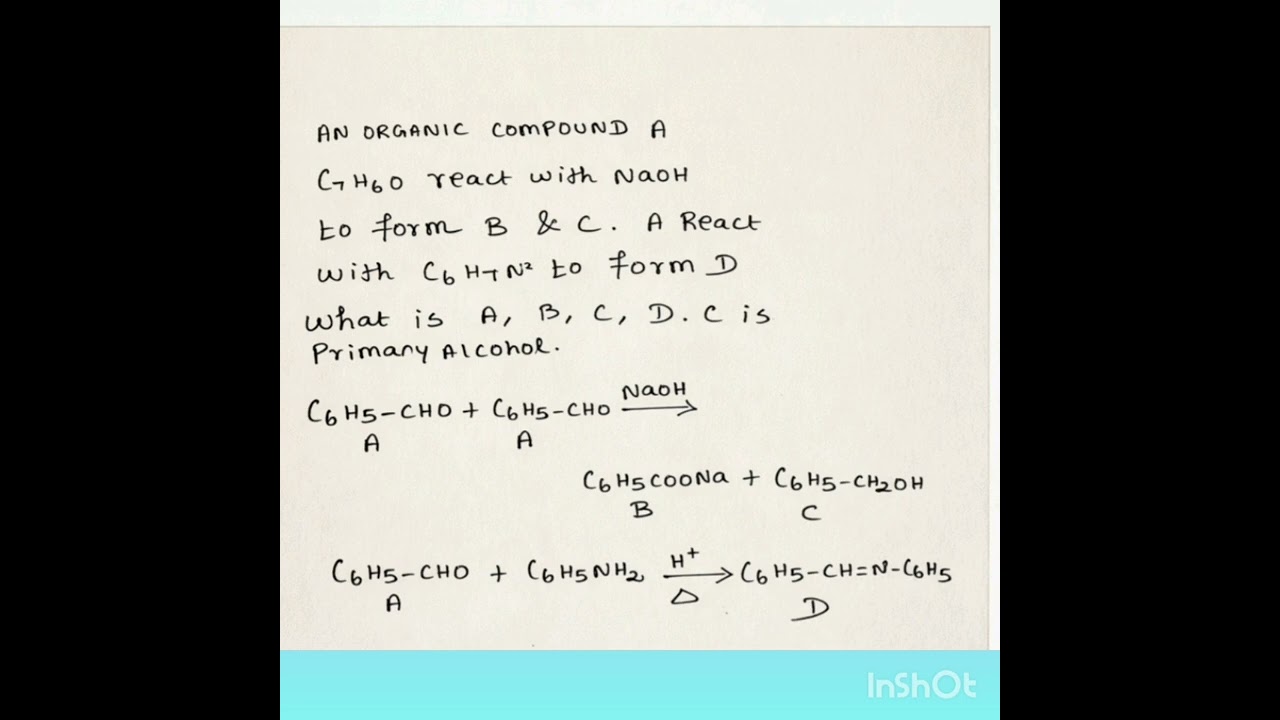 AN ORGANIC COMPOUND A
C7H6O react with NaOH
to form B & C. A React
with C6H7N² to form D
What is A, B, C, D. C is
Primary Alcohol.
C6H5-CHO + C6H5-CHO NaOH →
A A
C6H5COONa + C6H5-CH2OH
B C
C6H5-CHO + C6H5NH2 H+ → C6H5-CH=N-C6H5
A Δ D
InShOt